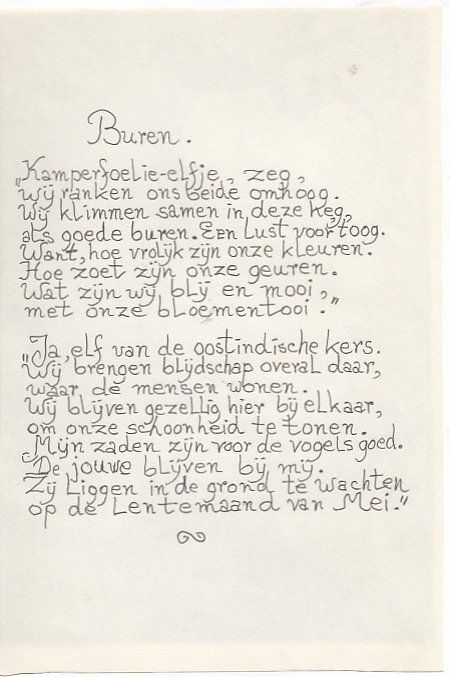 Buren.
„Kamperfoelie-elfje, zeg,
wij ranken ons beide omhoog.
Wij klimmen samen in deze heg,
als goede buren. Een lust voor 't oog.
Want, hoe vrolijk zijn onze kleuren.
Hoe zoet zijn onze geuren.
Wat zijn wij blij en mooi,
met onze bloementooi."
„Ja, elf van de oostindische kers.
Wij brengen blijdschap overal daar,
waar de mensen wonen.
Wij blijven gezellig hier bij elkaar,
om onze schoonheid te tonen.
Mijn zaden zijn voor de vogels goed.
De jouwe blijven bij mij.
Zij liggen in de grond te wachten
op de Lentemaand van Mei."